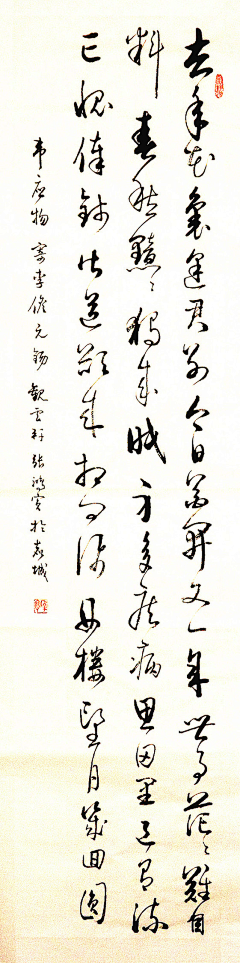 去年花里逢君别今日花开又一年世事茫茫难自
料春愁黯黯独成眠身多疾病思田里邑有流
亡愧俸钱闻道欲来相问讯西楼望月几回圆
韦应物寄李儋元锡 观云轩张鸿宾于袁城